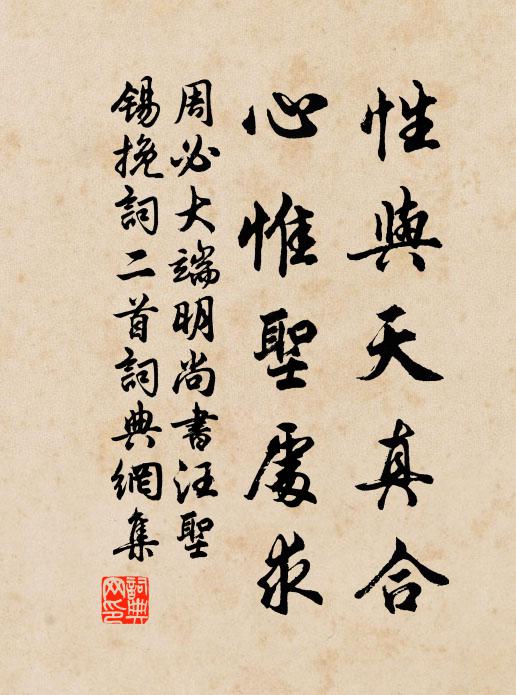 性與天真合
心惟聖處求
周必大端明尚書汪聖
錫挽詞二首詞典網集
詞典網印